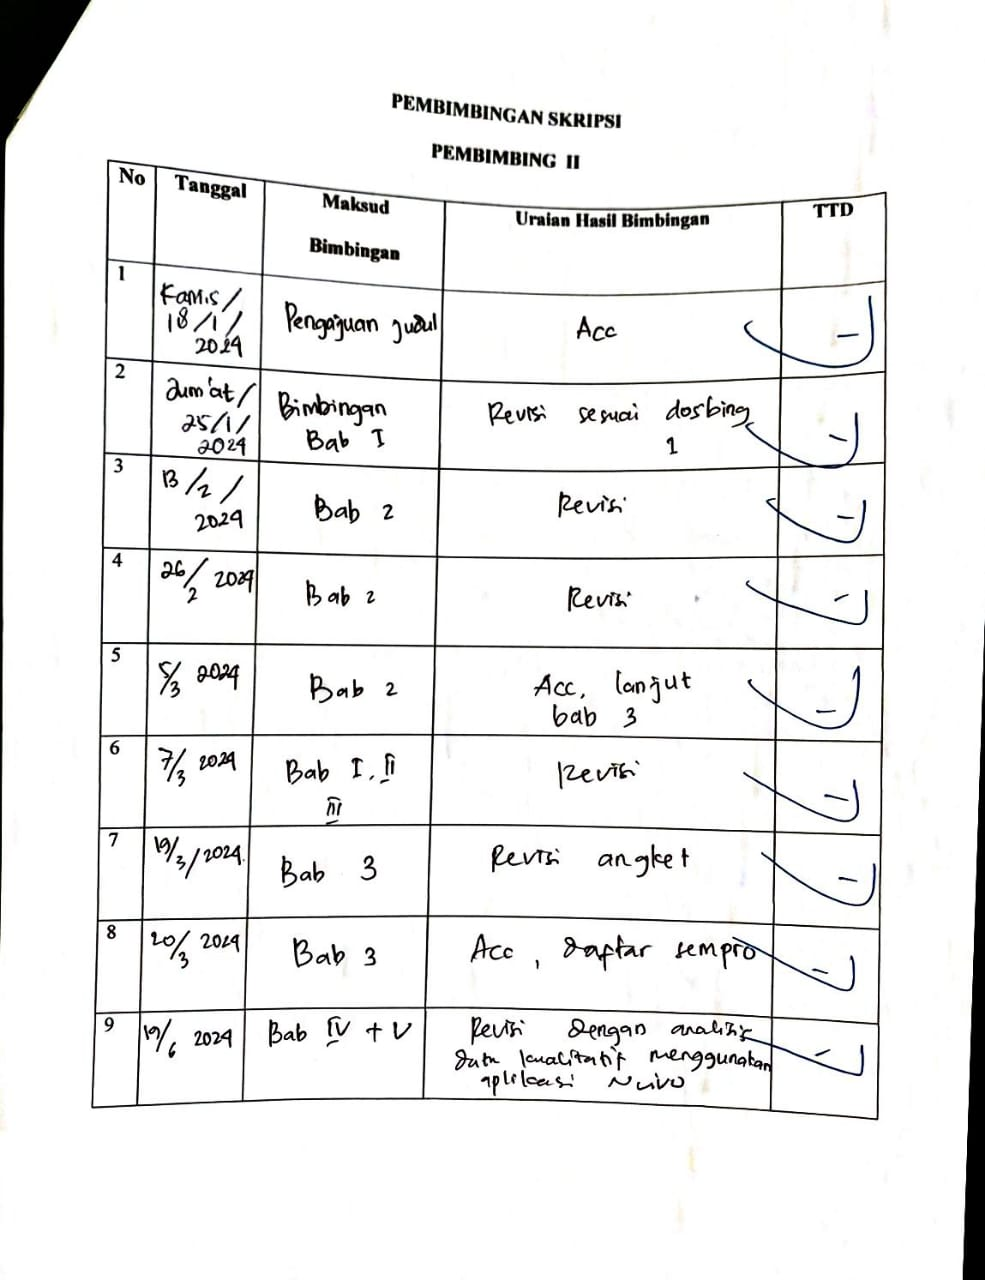 PEMBIMBINGAN SKRIPSI
PEMBIMBING II
No Tanggal Maksud Bimbingan Uraian Hasil Bimbingan TTD
1 Kamis / 18/1/ 2024 Pengajuan judul Acc
2 Jum'at / 25/1/ 2024 Bimbingan Bab I Revisi sesuai dosbing 1
3 13/2/ 2024 Bab 2 Revisi
4 26/2 2024 Bab 2 Revisi
5 5/3 2024 Bab 2 Acc, lanjut bab 3
6 7/3 2024 Bab I, II III Revisi
7 19/3/2024 Bab 3 Revisi angket
8 20/3 2024 Bab 3 Acc, daftar sempro
9 19/6 2024 Bab IV + V Revisi dengan analisis data kualitatif menggunakan aplikasi Nvivo